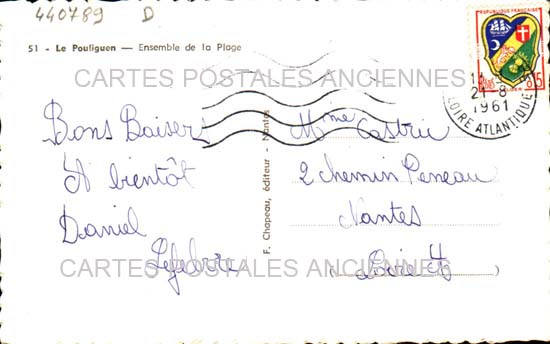 440789 D
51 - Le Pouliguen — Ensemble de la Plage
REPUBLIQUE FRANÇAISE
21-8
1961
LOIRE ATLANTIQUE
CARTES POSTALES ANCIENNES
Bons Baisers
A bientôt
Daniel
Lefebvre
F. Chapeau, éditeur - Nantes
Mme Castric
2 chemin Peneau
Nantes
Loire A
CARTES POSTALES ANCIENNES